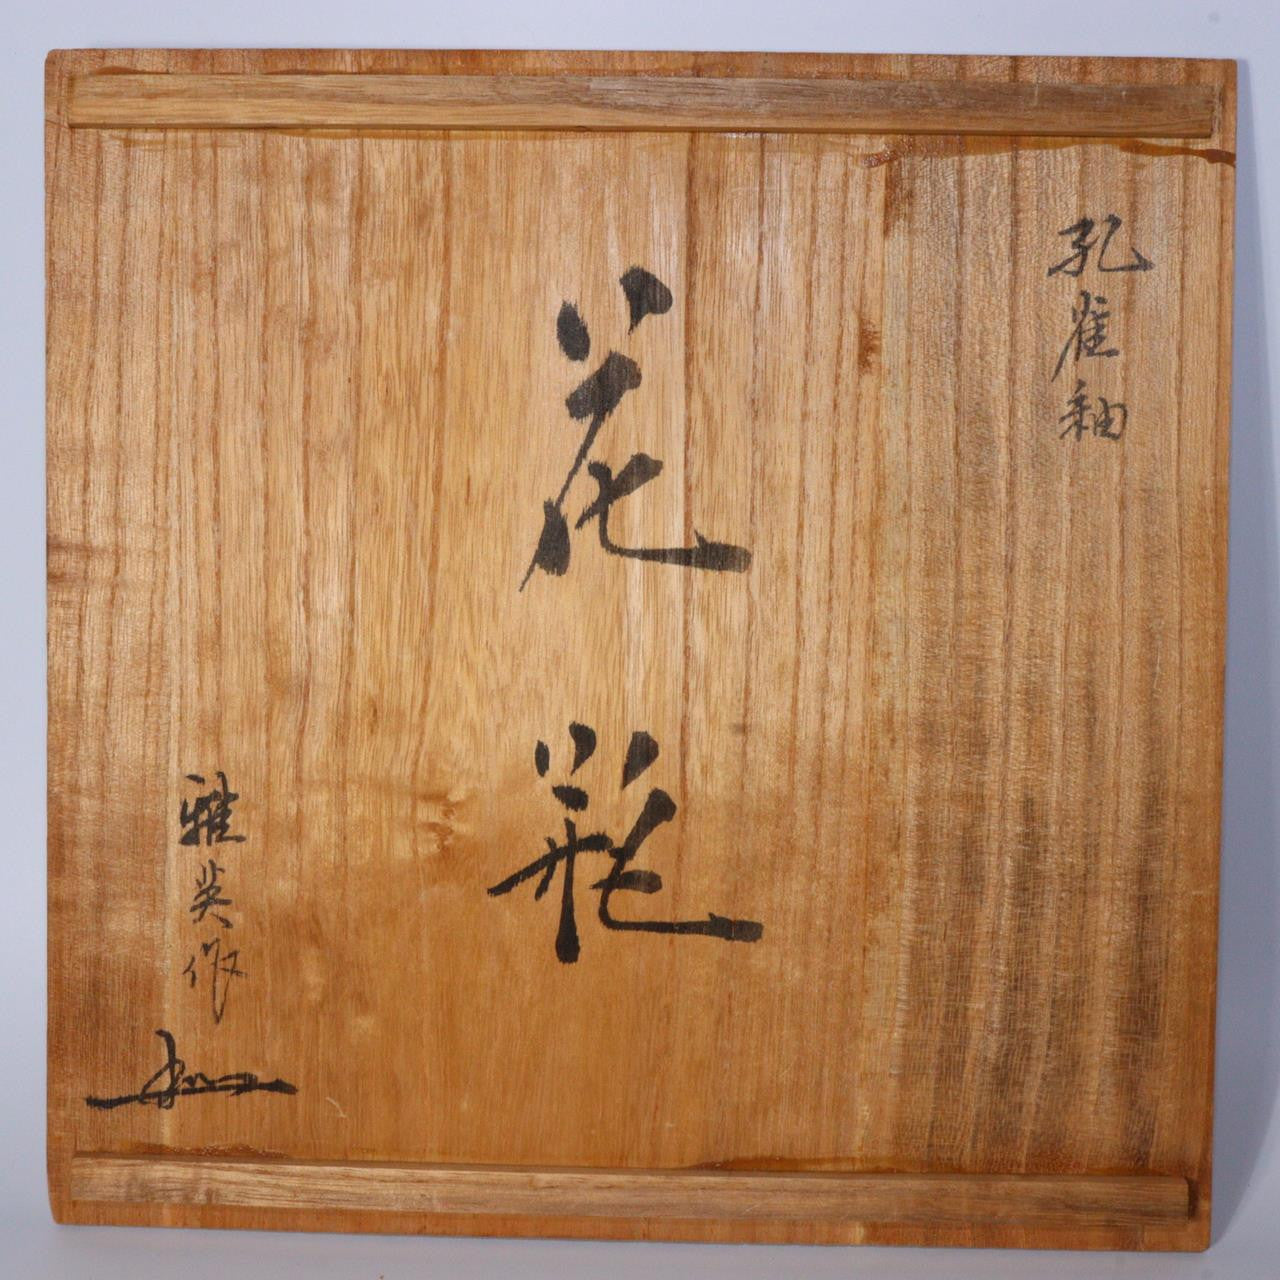 孔雀釉
花瓶
雅英作